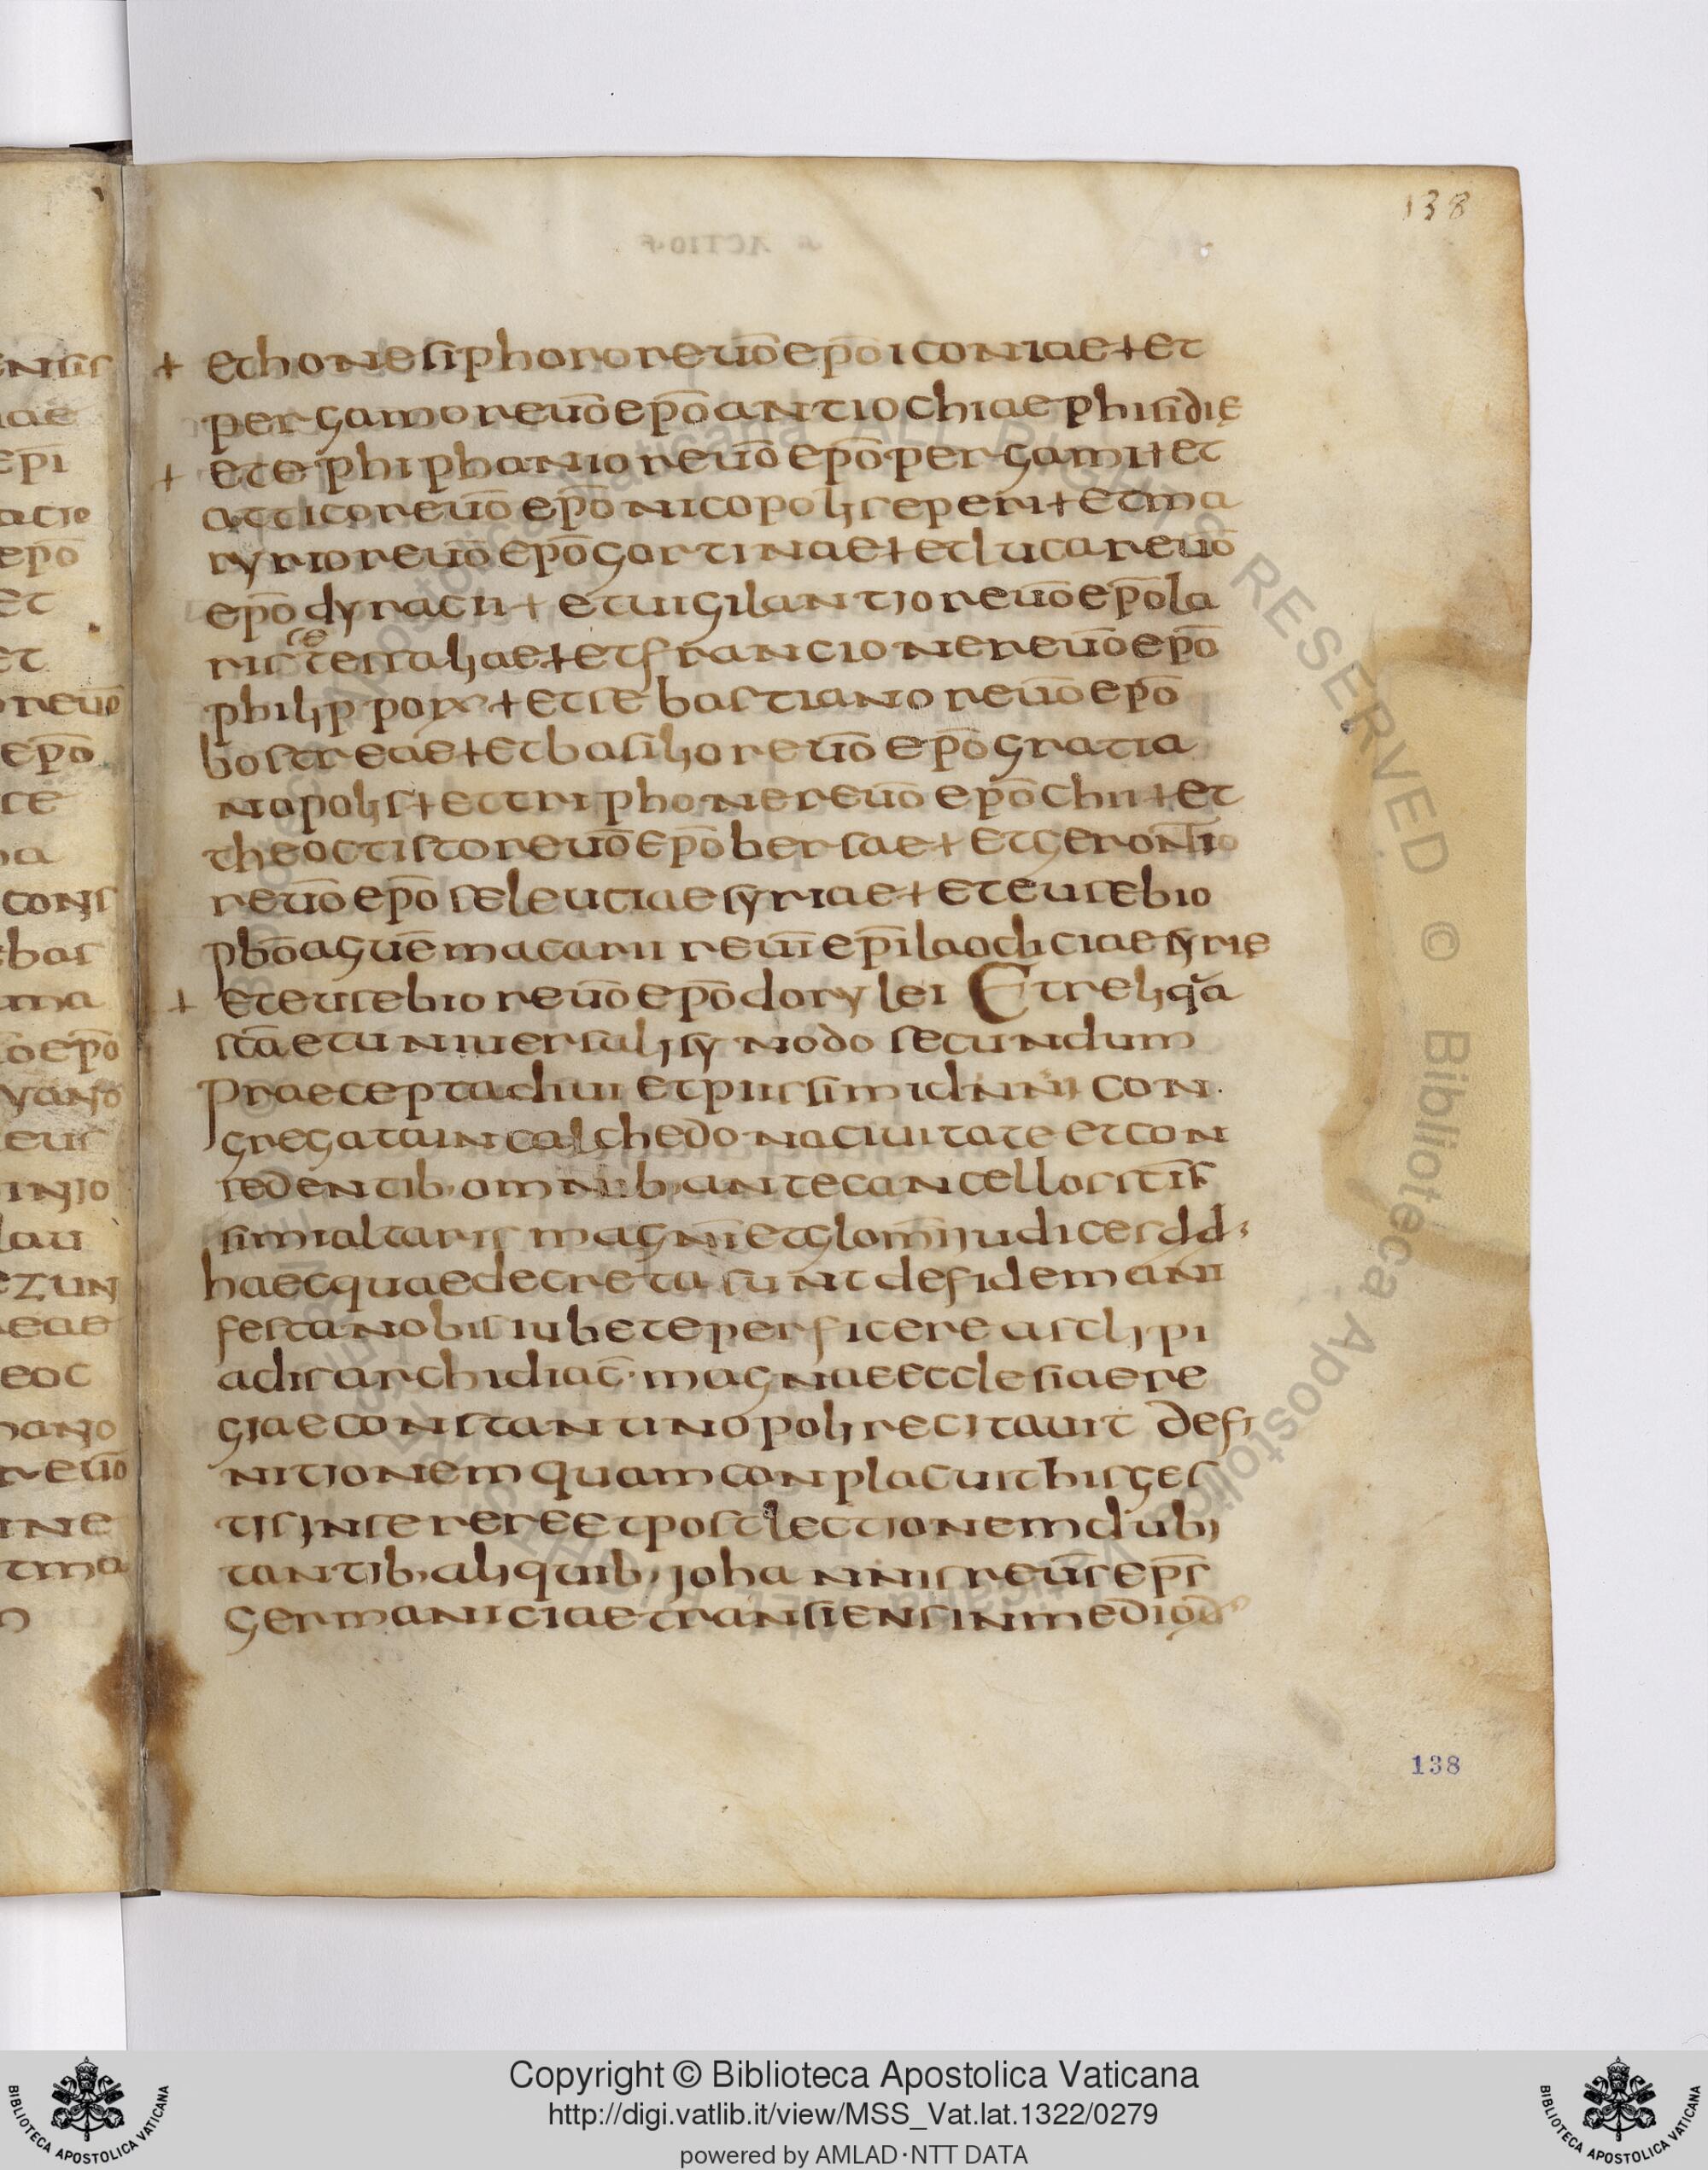 138
+ et honesiphoro reuo̅ epo̅ iconiae + et
pergamo reuo̅ epo̅ antiochiae phisidię
+ et ephiphanio reuo̅ epo̅ pergami + et
attico reuo̅ epo̅ nicopolis eperi + et ma
ryrio reuo̅ epo̅ gortinae + et luca reuo̅
epo̅ dyracii + et uigilantio reuo̅ epo̅ la
risce tessaliae + et francione reuo̅ epo̅
philippopix + et sebastiano reuo̅ epo̅
bostreae + et basilio reuo̅ epo̅ gratia
nopolis + et triphone reuo̅ epo̅ chii + et
theoctisto reuo̅ epo̅ bersae + et gerontio
reuo̅ epo̅ seleuciae syriae + et eusebio
pbo̅ ague̅ macarii reui̅ epi̅ laodiciae syrię
+ et eusebio reuo̅ epo̅ dorylei Et reliqa
sta̅ et uniuersali synodo secundum
praecepta diui et piissimi dnni̅ con
gregata in calchedona ciuitate et con
sedentib, omnib, ante cancellos sti̅s
simi altaris magni̅ et gloni̅ iudices dd,
haec quae decreta sunt de fide mani
festa nobis iubete perficere asclipi
adis archidiac̅ magnae ecclesiae re
giae constantinopoli recitauit defi
nitionem quam conplacuit his ges
tis inserere et post lectionem dubi
tantib, aliquib, iohannis reus̅ eps̅
germaniciae transiens in medio d̅
138
Copyright © Biblioteca Apostolica Vaticana
http://digi.vatlib.it/view/MSS_Vat.lat.1322/0279
powered by AMLAD·NTT DATA